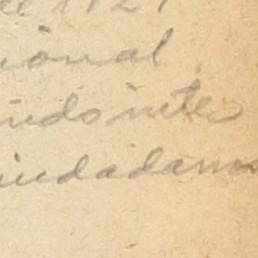 de 1921
ional
ndo inte
iudadanos